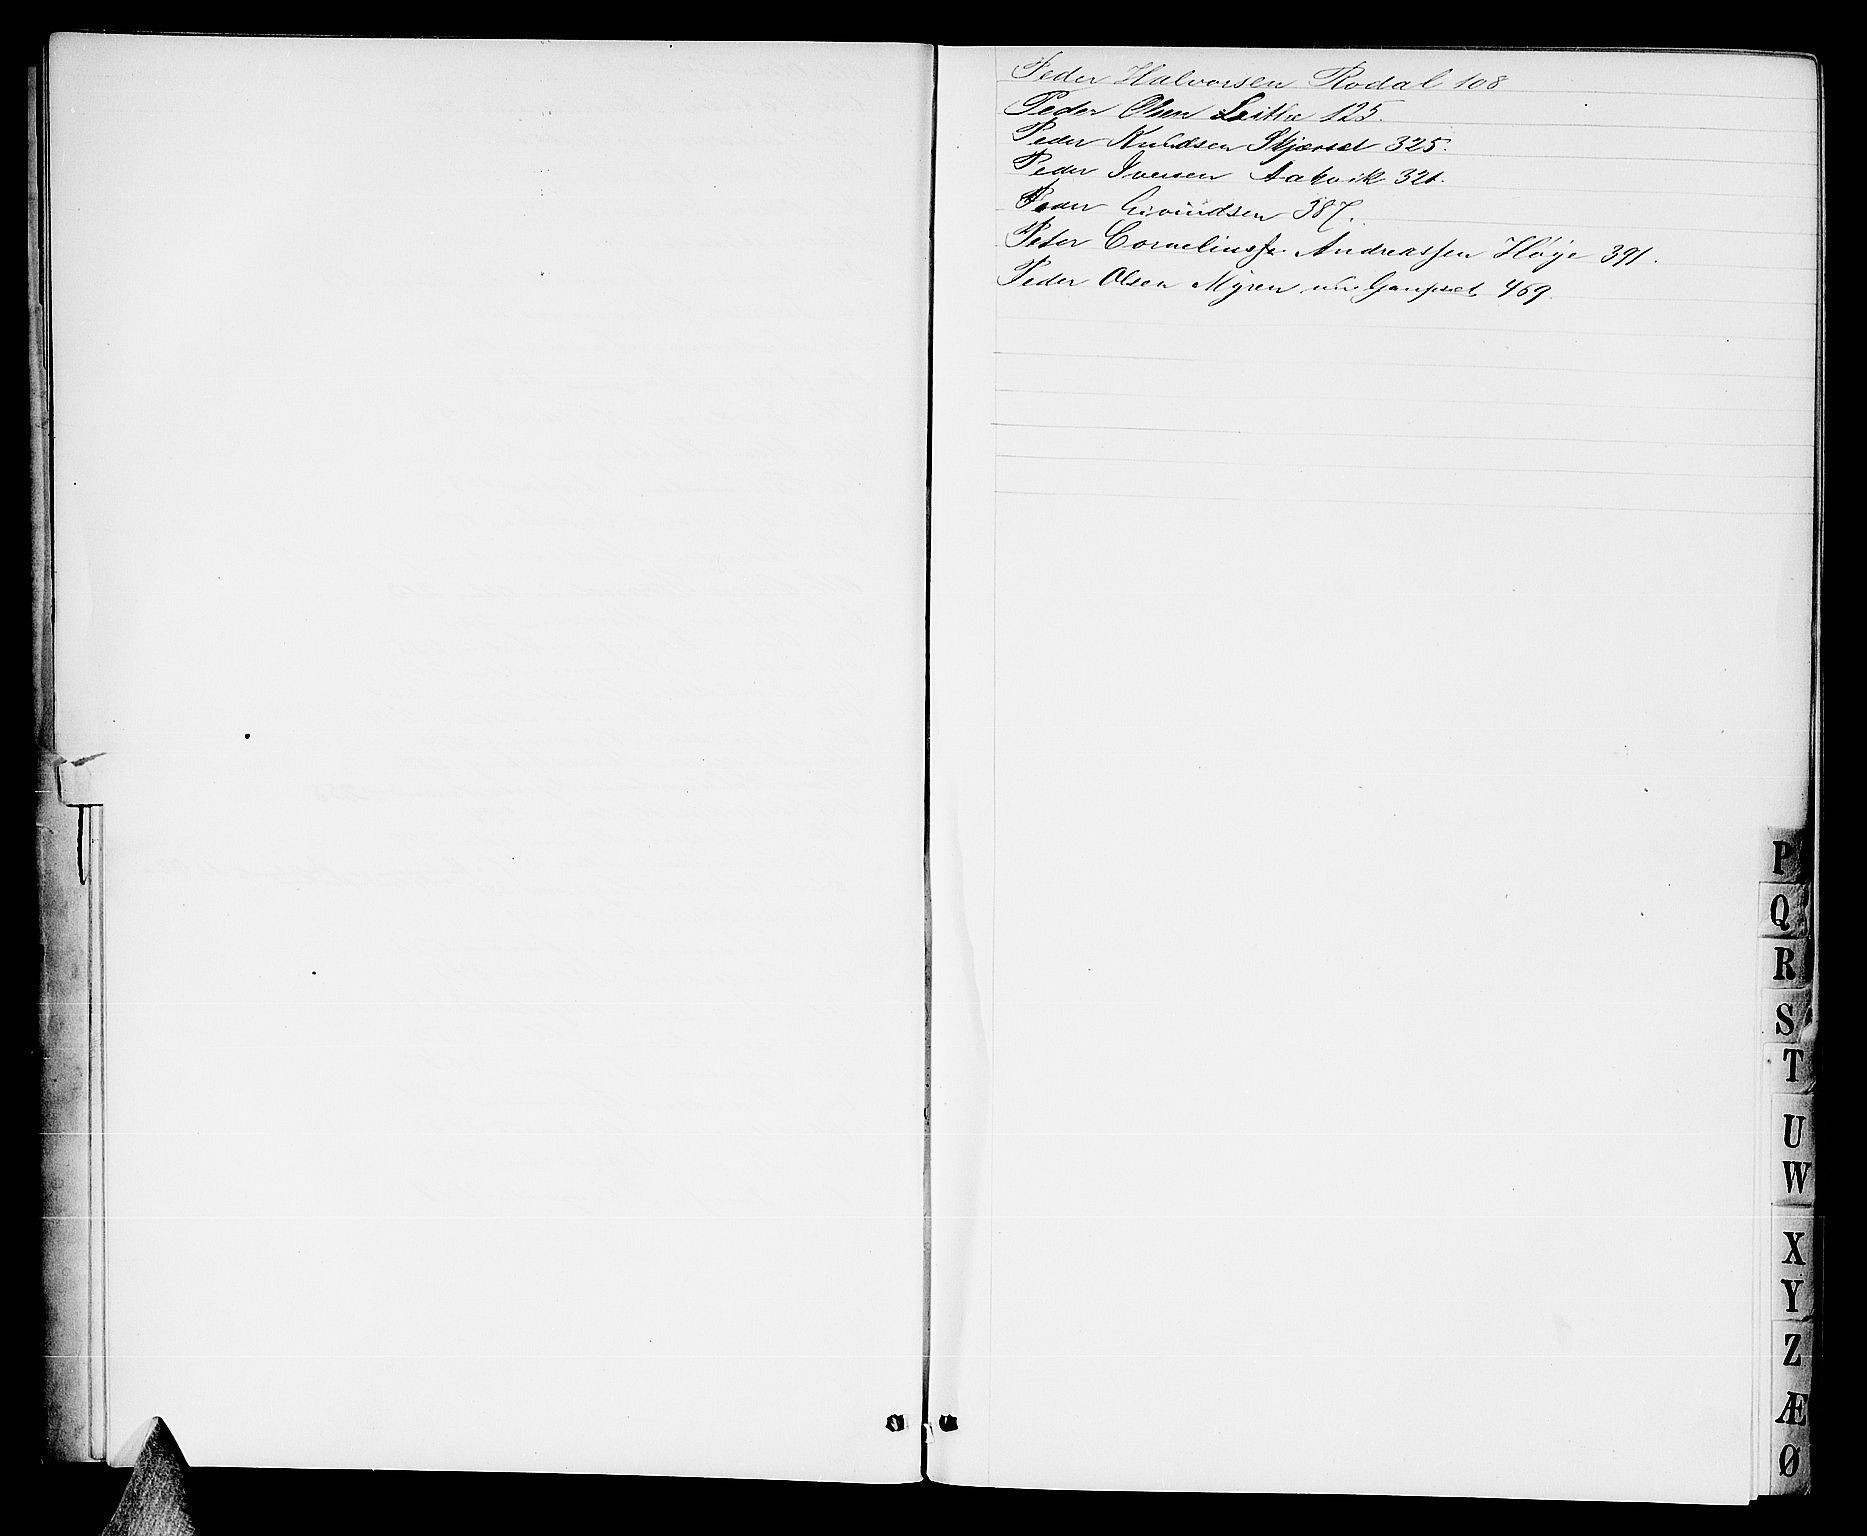 Peder Halvorsen Rodal 108
Peder Olsen Leithe 125.
Peder Knudsen Skjærset 325.
Peder Iversen Aakvik 321.
Peder Eivindsen 387.
Peter Corneliusf. Andreassen Høye 391.
Peder Olsen Myren Gaupset 469.
P
Q
R
S
T
U
W
X
Y
Z
Æ
Ø